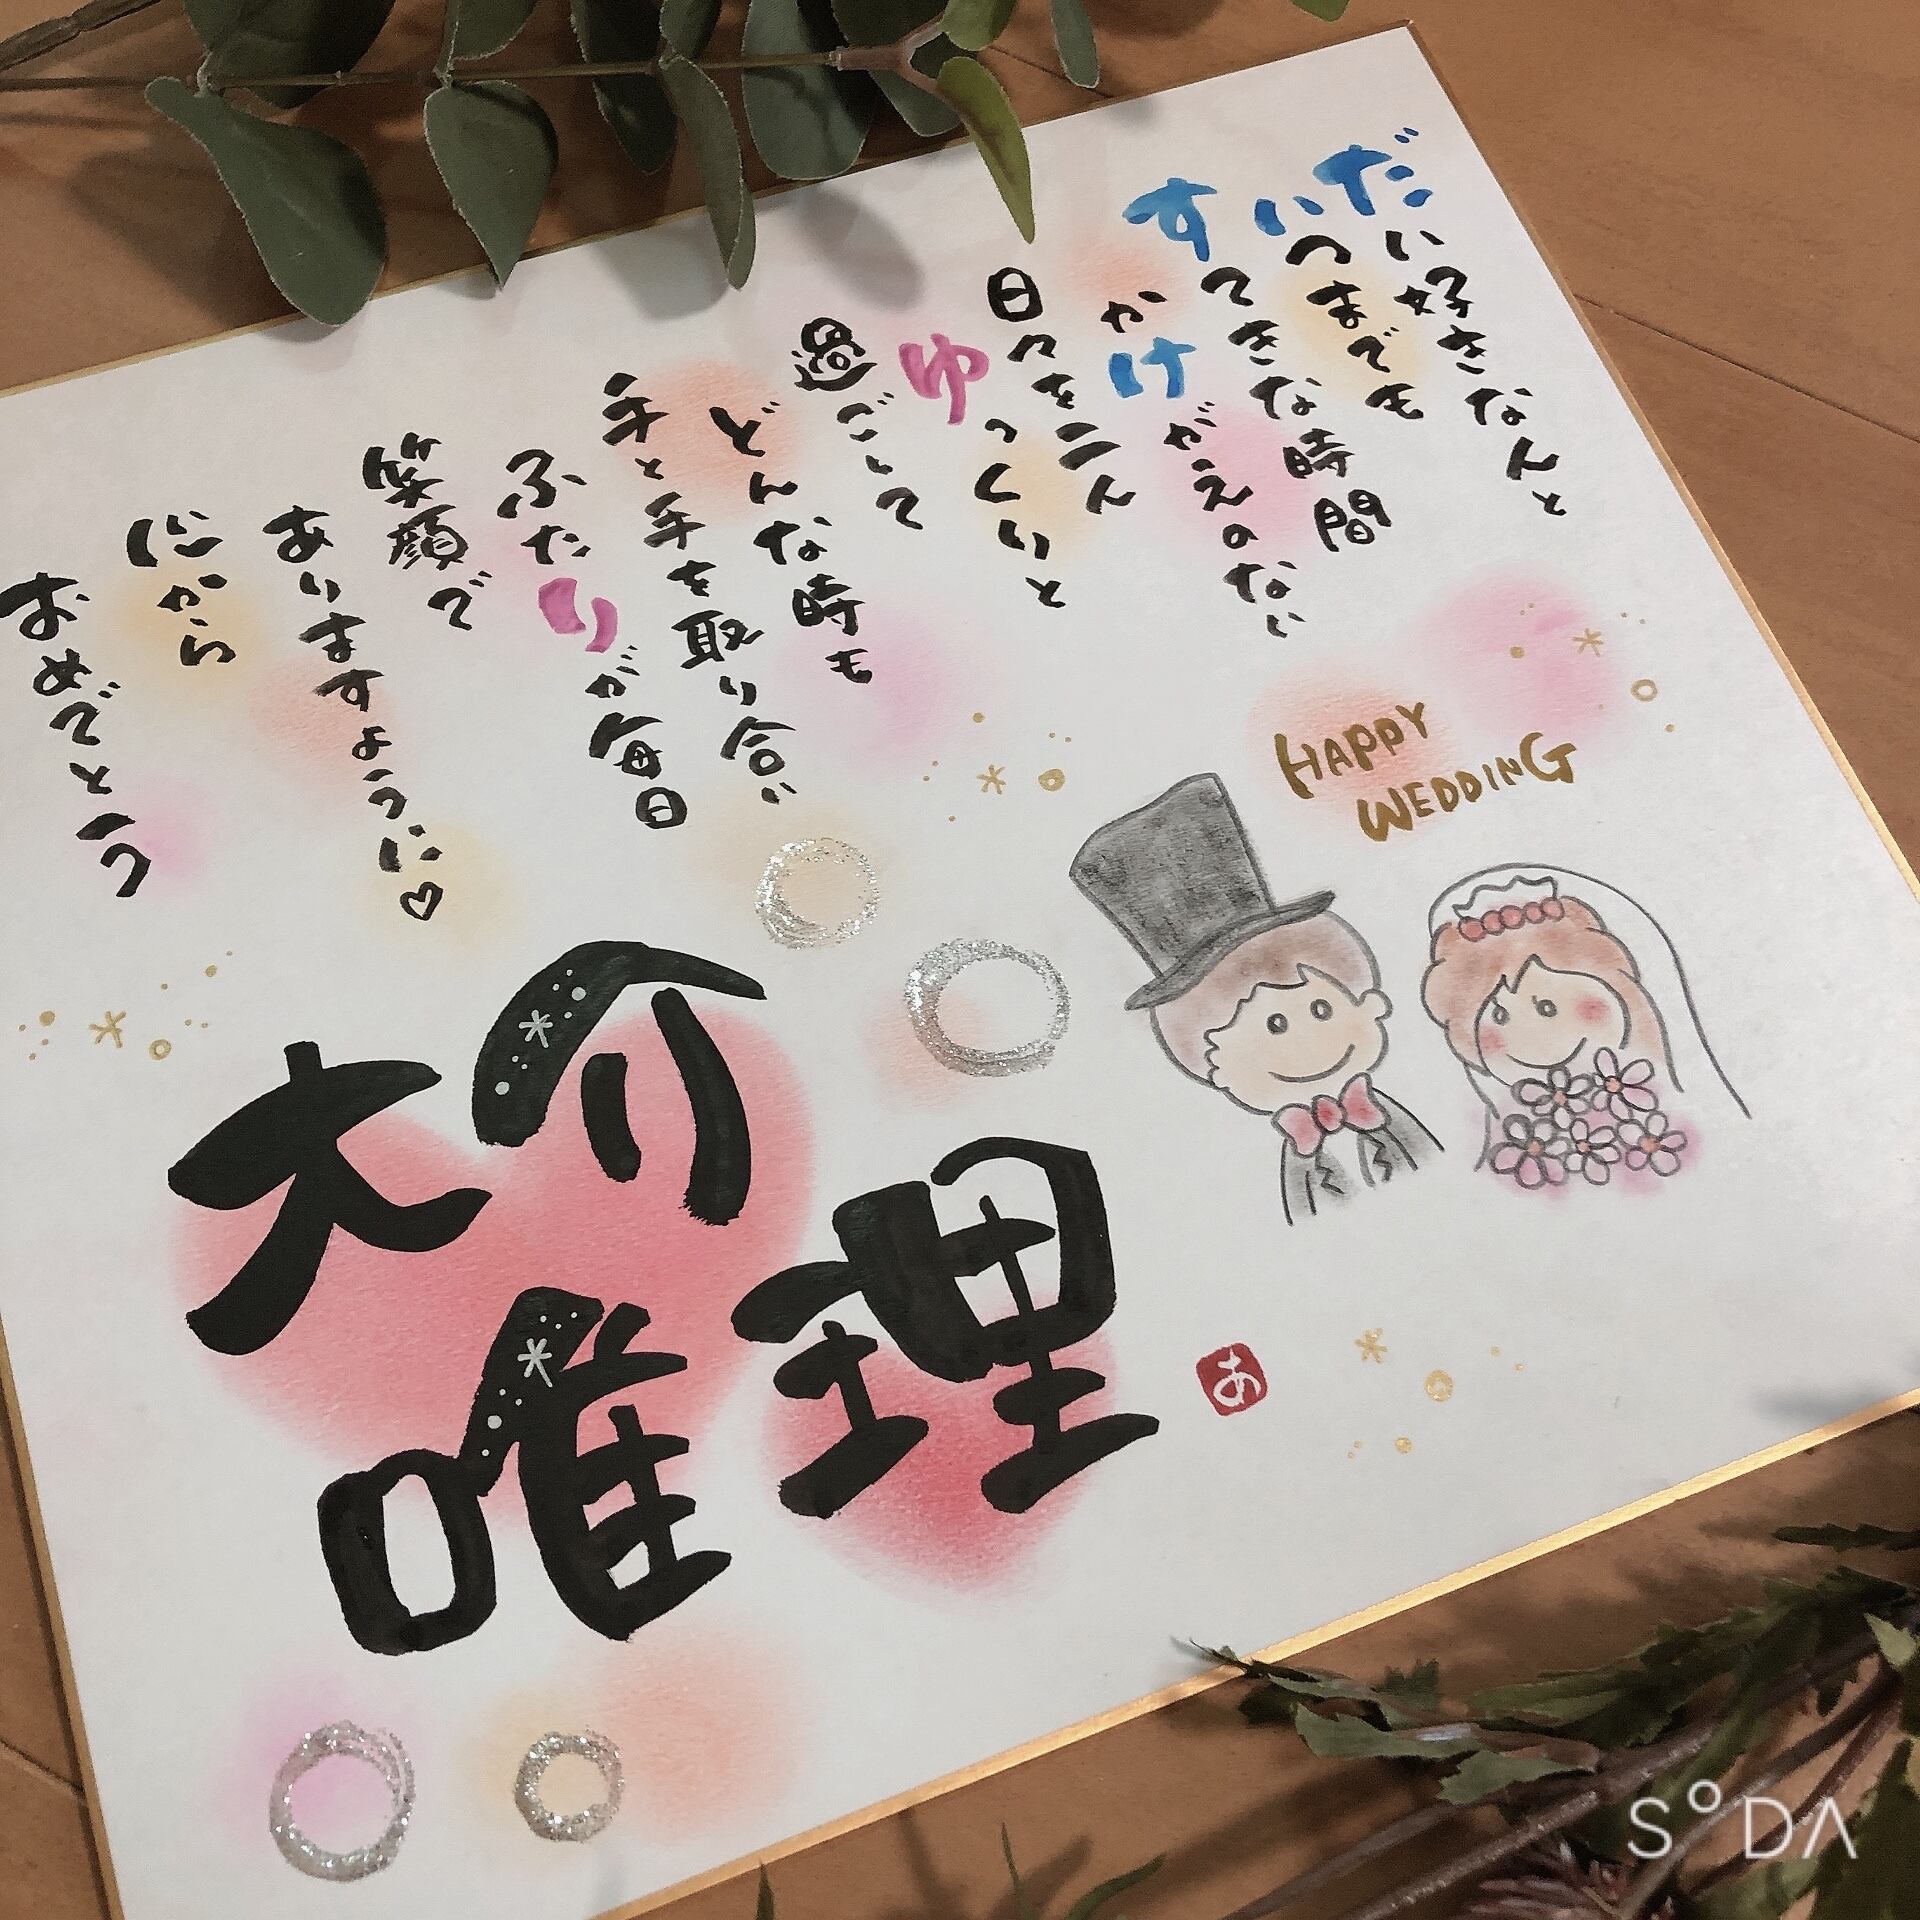 だい好きなんと
いつまでも
すてきな時間
かけがえのない
日々を二人
ゆっくりと
過ごして
どんな時も
手と手を取り合い
ふたりが毎日
笑顔で
ありますように♡
心から
おめでとう
HAPPY
WEDDING
大介
唯理
あ
SODA